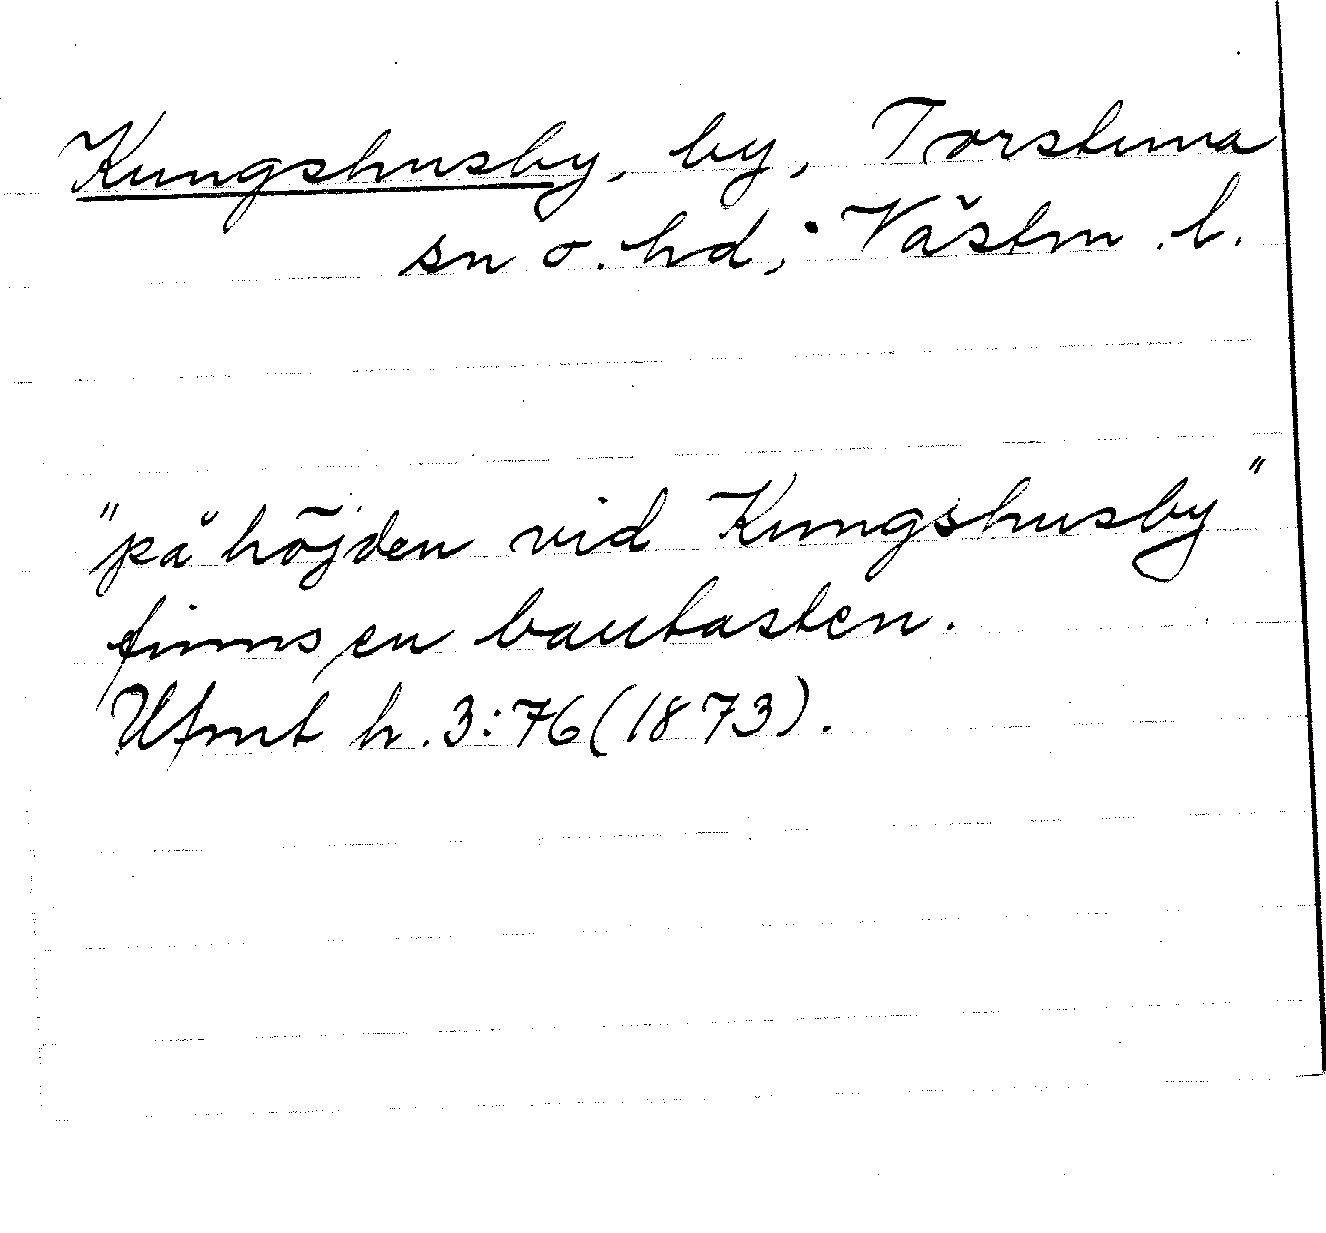 Kungshusby, by, Torstuna
sn o. hd, Västm. l.
"på höjden vid Kungshusby"
finns en bautasten.
Ufmt h. 3:76 (1873).